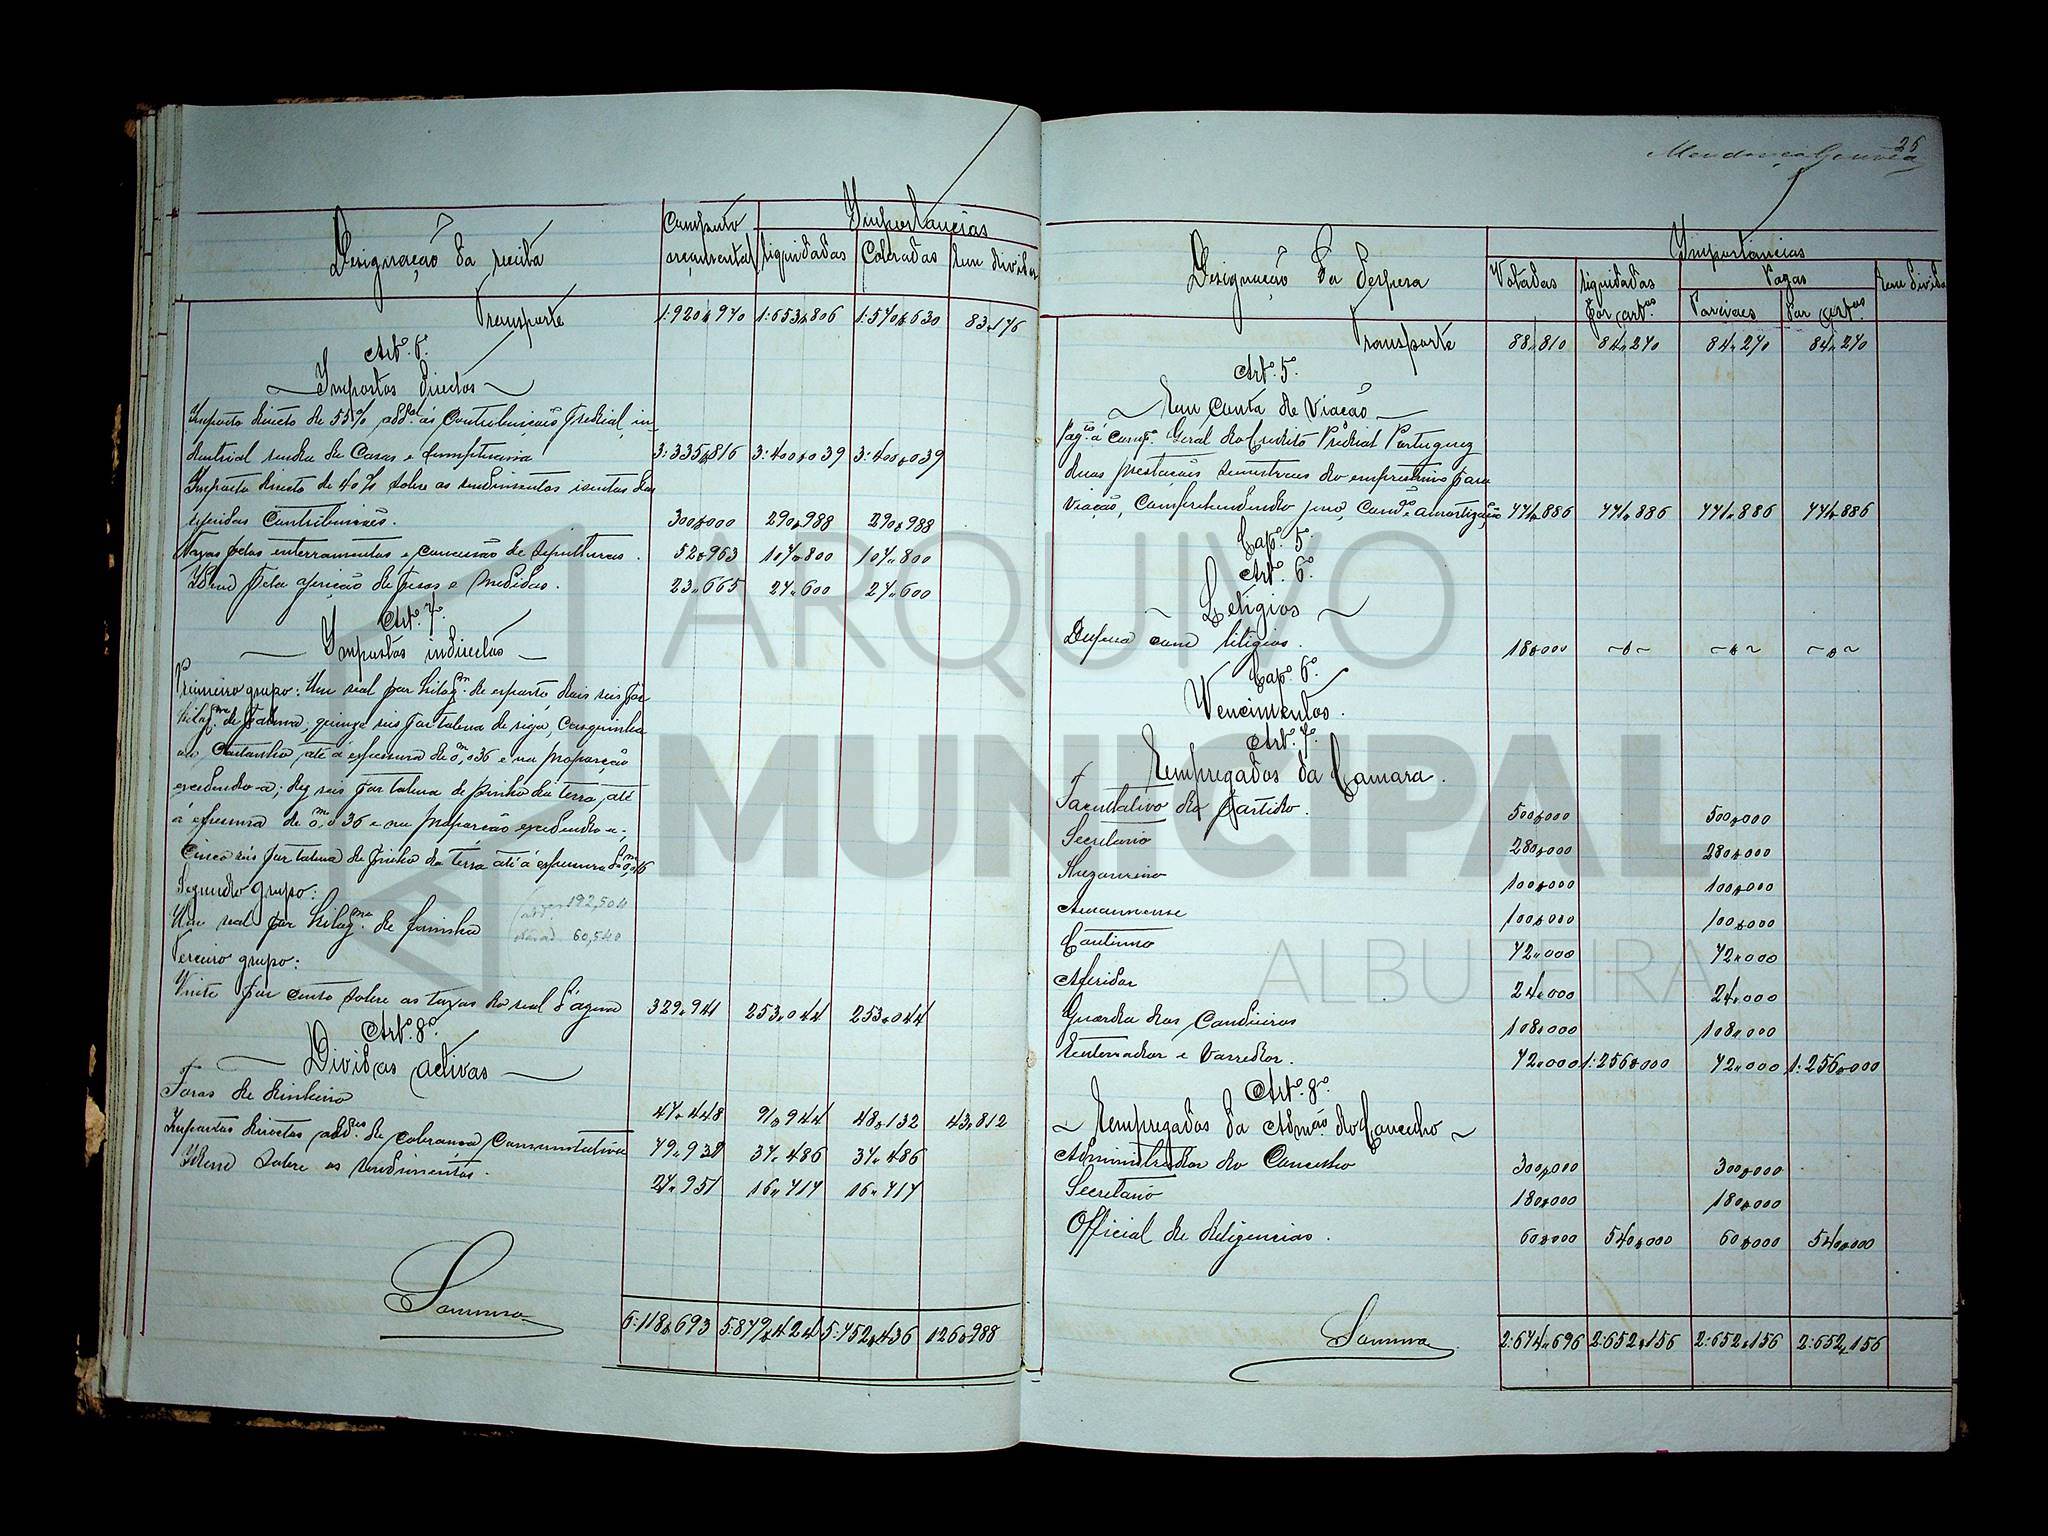 Designação da receita
Computo orçamental
Importancias
liquidadas
Cobradas
Em divida
Transporte 1:920$970 1:653$806 1:570$630 83$176
Artº. 6º.
Impostos directos
Imposto directo de 55% addal. ás Contribuições predial, in-
dustrial renda de Casas e sumptuaria 3:335$816 3:400$039 3:400$039
Imposto directo de 40% sobre os rendimentos isentos das
referidas Contribuições. 300$000 290$988 290$988
Taxas pelos enterramentos e concessão de sepulturas. 52$963 107$800 107$800
Idem pela aferição de pesos e medidas. 23$665 27$600 27$600
Artº. 7º.
Impostos indirectos
Primeiro grupo: Um real por kilogmo. de esparto, dois reis por
kilogmo. de palma; quinze reis por taboa de riga, casquinha
ou Castanho, até á espessura de 0m,036 e na proporção
excedendo-a; dez reis por taboa de pinho da terra, até
á espessura de 0m,036 e na proporção excedendo-a;
Cinco reis por taboa de pinho da terra até á espessura de 0m,016
Segundo grupo:
192,504
Um real por kilogmo. de farinha
60,540
Terceiro grupo:
Vinte por cento sobre as taxas do real d'agua 329$941 253$044 253$044
Artº. 8º.
Dividas activas
Foros de dinheiro 47$448 91$944 48$132 43$812
Impostos directos addes. de cobrança Comunitativa 79$938 37$486 37$486
Idem sobre os rendimentos. 27$951 16$717 16$717
Somma 6:118$693 5:879$424 5:752$436 126$988
26
Mendonça Gouvêa
Designação da despesa
Importancias
Votadas
liquidadas Por artos.
Pagas
Parciaes
Por artos.
Em divida
Transporte 88$810 84$270 84$270 84$270
Artº. 5º.
Em Conta de Viação
Pagto. á Compª. Geral do Credito Predial Portuguez
duas prestações semestraes do emprestimo para
viação, Comprehendendo juro, Comão. e amortização 771$886 771$886 771$886 771$886
Cap. 5º.
Artº. 6º.
Letigios
Despesa com litigios. 18$000 -$- -$- -$-
Cap. 6º.
Vencimentos.
Artº. 7º.
Empregados da Camara.
Facultativo do partido. 500$000 500$000
Secretario 280$000 280$000
Thezoureiro 100$000 100$000
Amanuense 100$000 100$000
Continuo 72$000 72$000
Aferidor 24$000 24$000
Guarda dos Candieiros 108$000 108$000
Enterrador e varredor. 72$000 1:256$000 72$000 1:256$000
Artº. 8º.
Empregados da Admão. do Concelho
Administrador do Concelho 300$000 300$000
Secretario 180$000 180$000
Official de deligencias. 60$000 540$000 60$000 540$000
Somma 2:674$696 2:652$156 2:652$156 2:652$156
ARQUIVO
MUNICIPAL
ALBUFEIRA